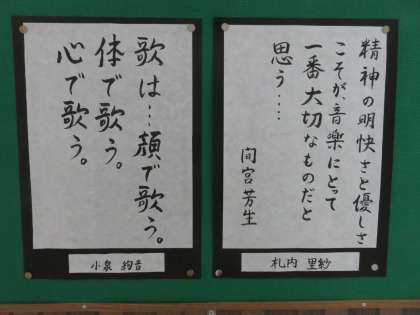 精神の明快さと優しさ
こそが、音楽にとって
一番大切なものだと
思う....
間宮芳生
札内 里紗
歌は...顔で歌う。
体で歌う。
心で歌う。
小泉 絢音